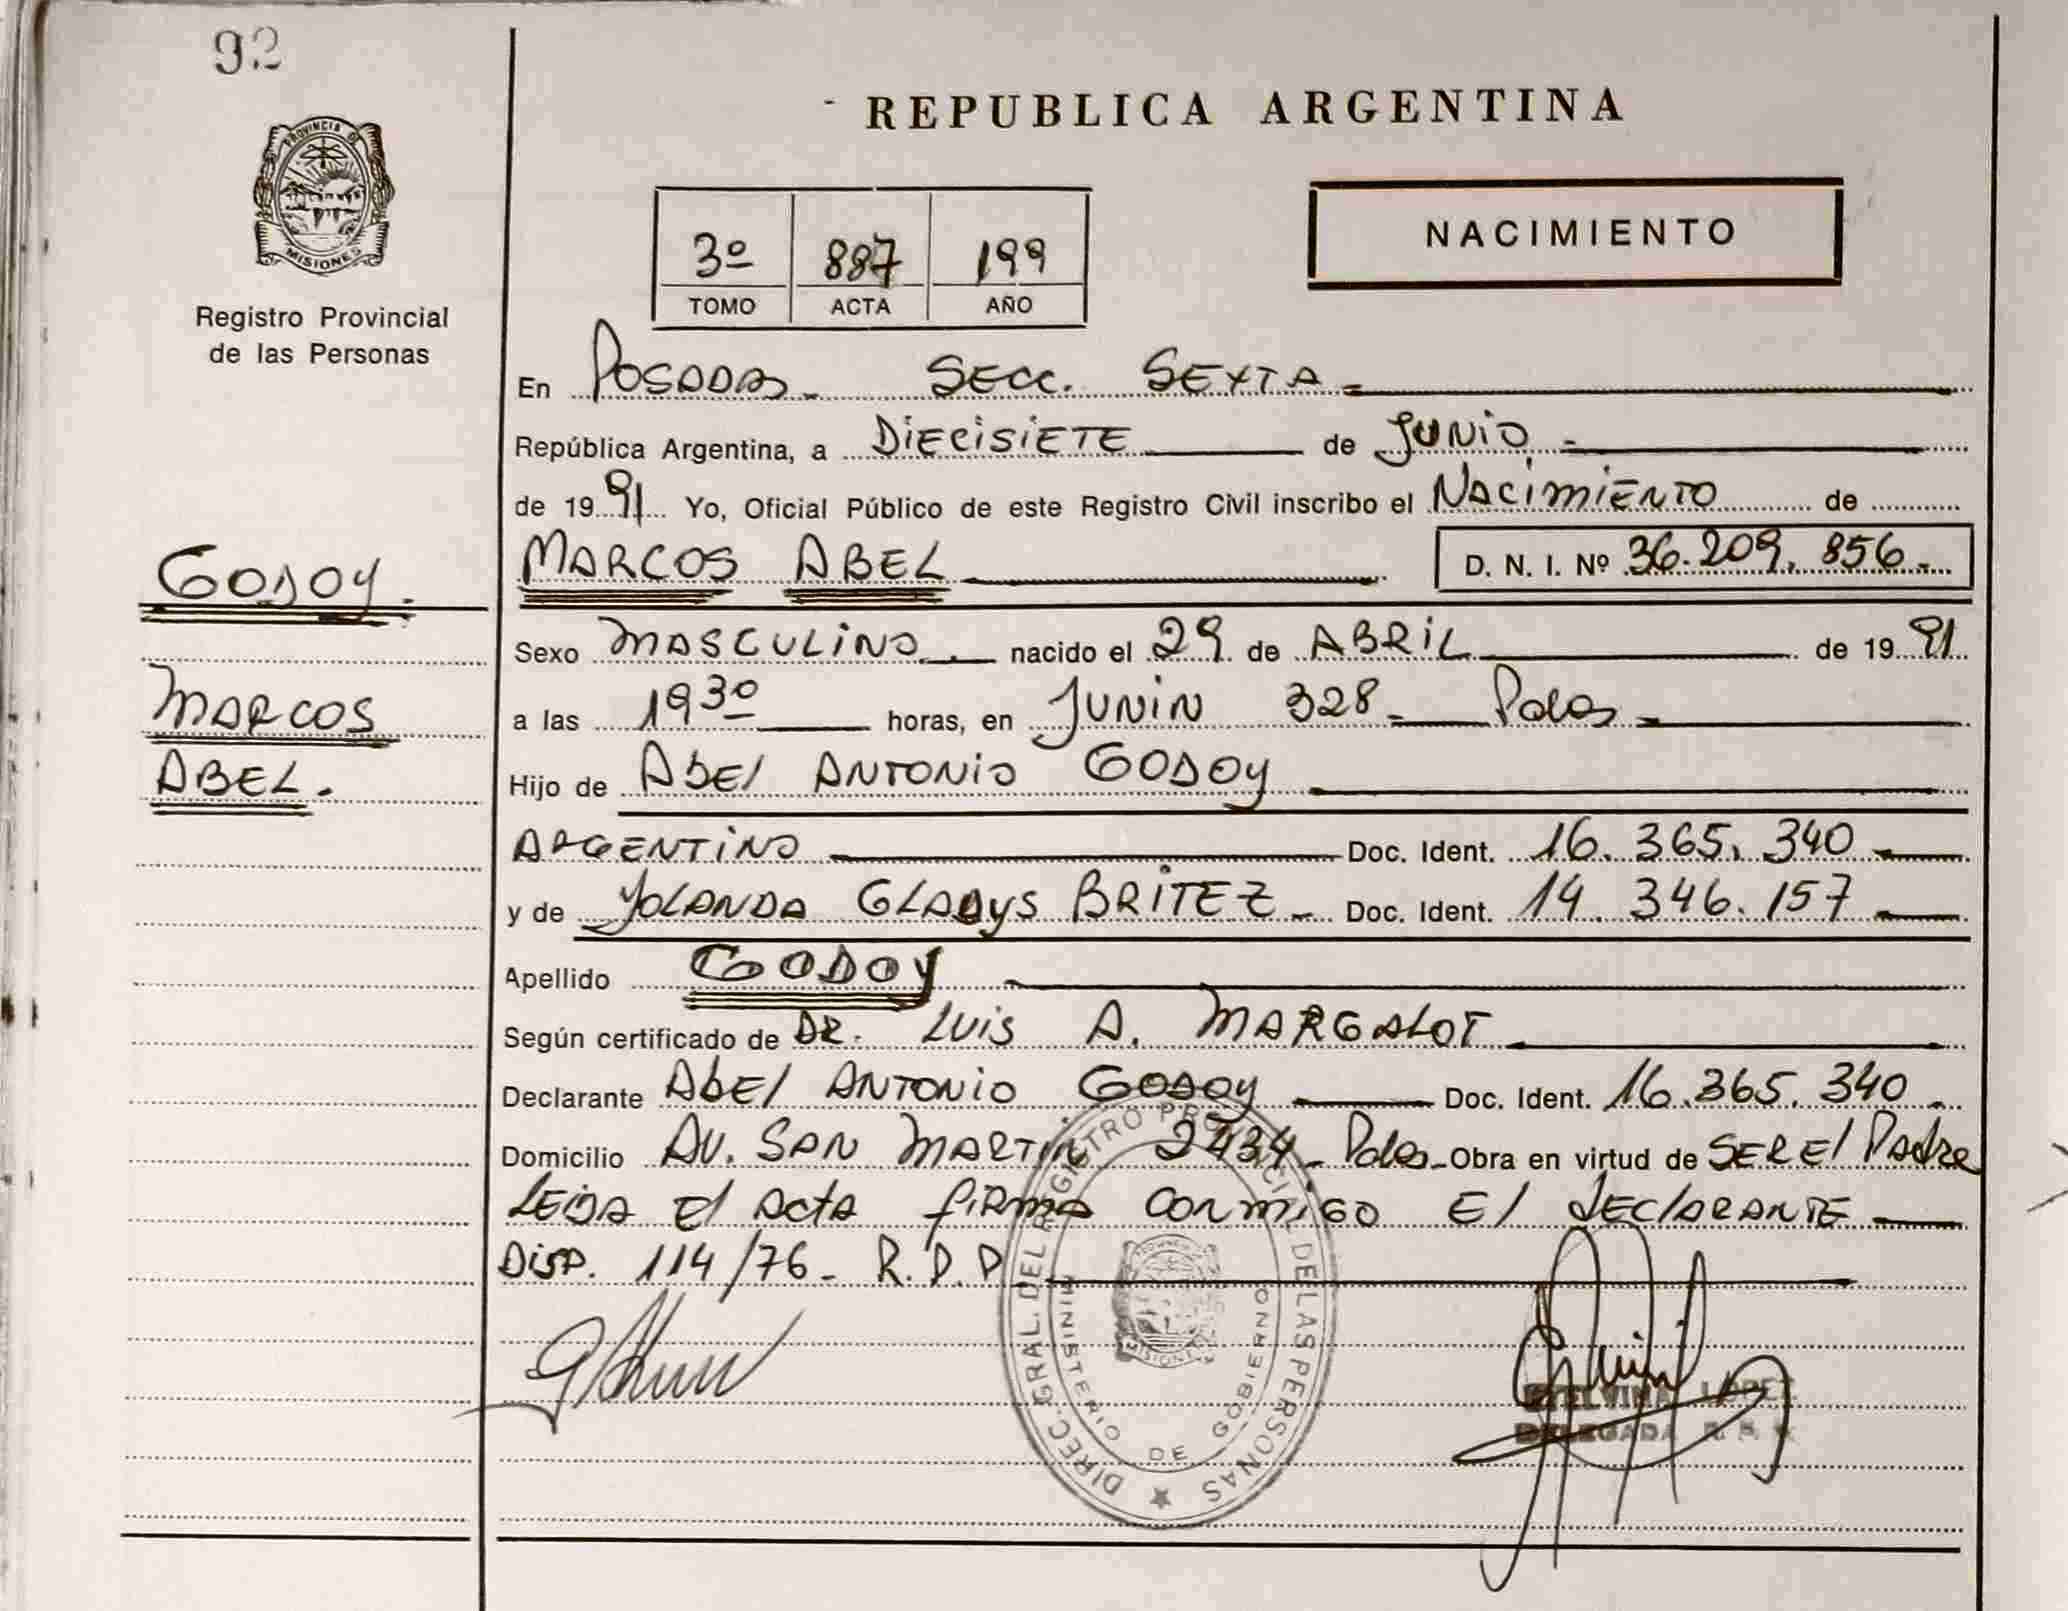 92
REPUBLICA ARGENTINA
PROVINCIA DE
MISIONES
Registro Provincial
de las Personas
NACIMIENTO
3º 887 199
TOMO ACTA AÑO
En POSADAS - SECC. SEXTA -
República Argentina, a DIECISIETE de JUNIO -
de 1991 Yo, Oficial Público de este Registro Civil inscribo el NACIMIENTO de
GODOY.
MARCOS
ABEL.
MARCOS ABEL D. N. I. Nº 36.209.856 -
Sexo MASCULINO. nacido el 29 de ABRIL de 1991
a las 19 30 horas, en JUNIN 328 - Pdas -
Hijo de Abel ANTONIO GODOY
ARGENTINO Doc. Ident. 16.365.340
y de YOLANDA GLADYS BRITEZ - Doc. Ident. 14.346.157
Apellido GODOY
Según certificado de DR. LUIS A. MARGALOT
Declarante Abel ANTONIO GODOY Doc. Ident. 16.365.340
Domicilio AV. SAN MARTIN 2434 - Pdas - Obra en virtud de SER El Padre
LEIDA El Acta firma conmigo El declarante
DISP. 114/76 - R.P.P
DIREC. GRAL. DEL REGISTRO PROVINCIAL DE LAS PERSONAS
MINISTERIO DE GOBIERNO
MISIONES
ETELVINA LOPEZ
DELEGADA R. P.